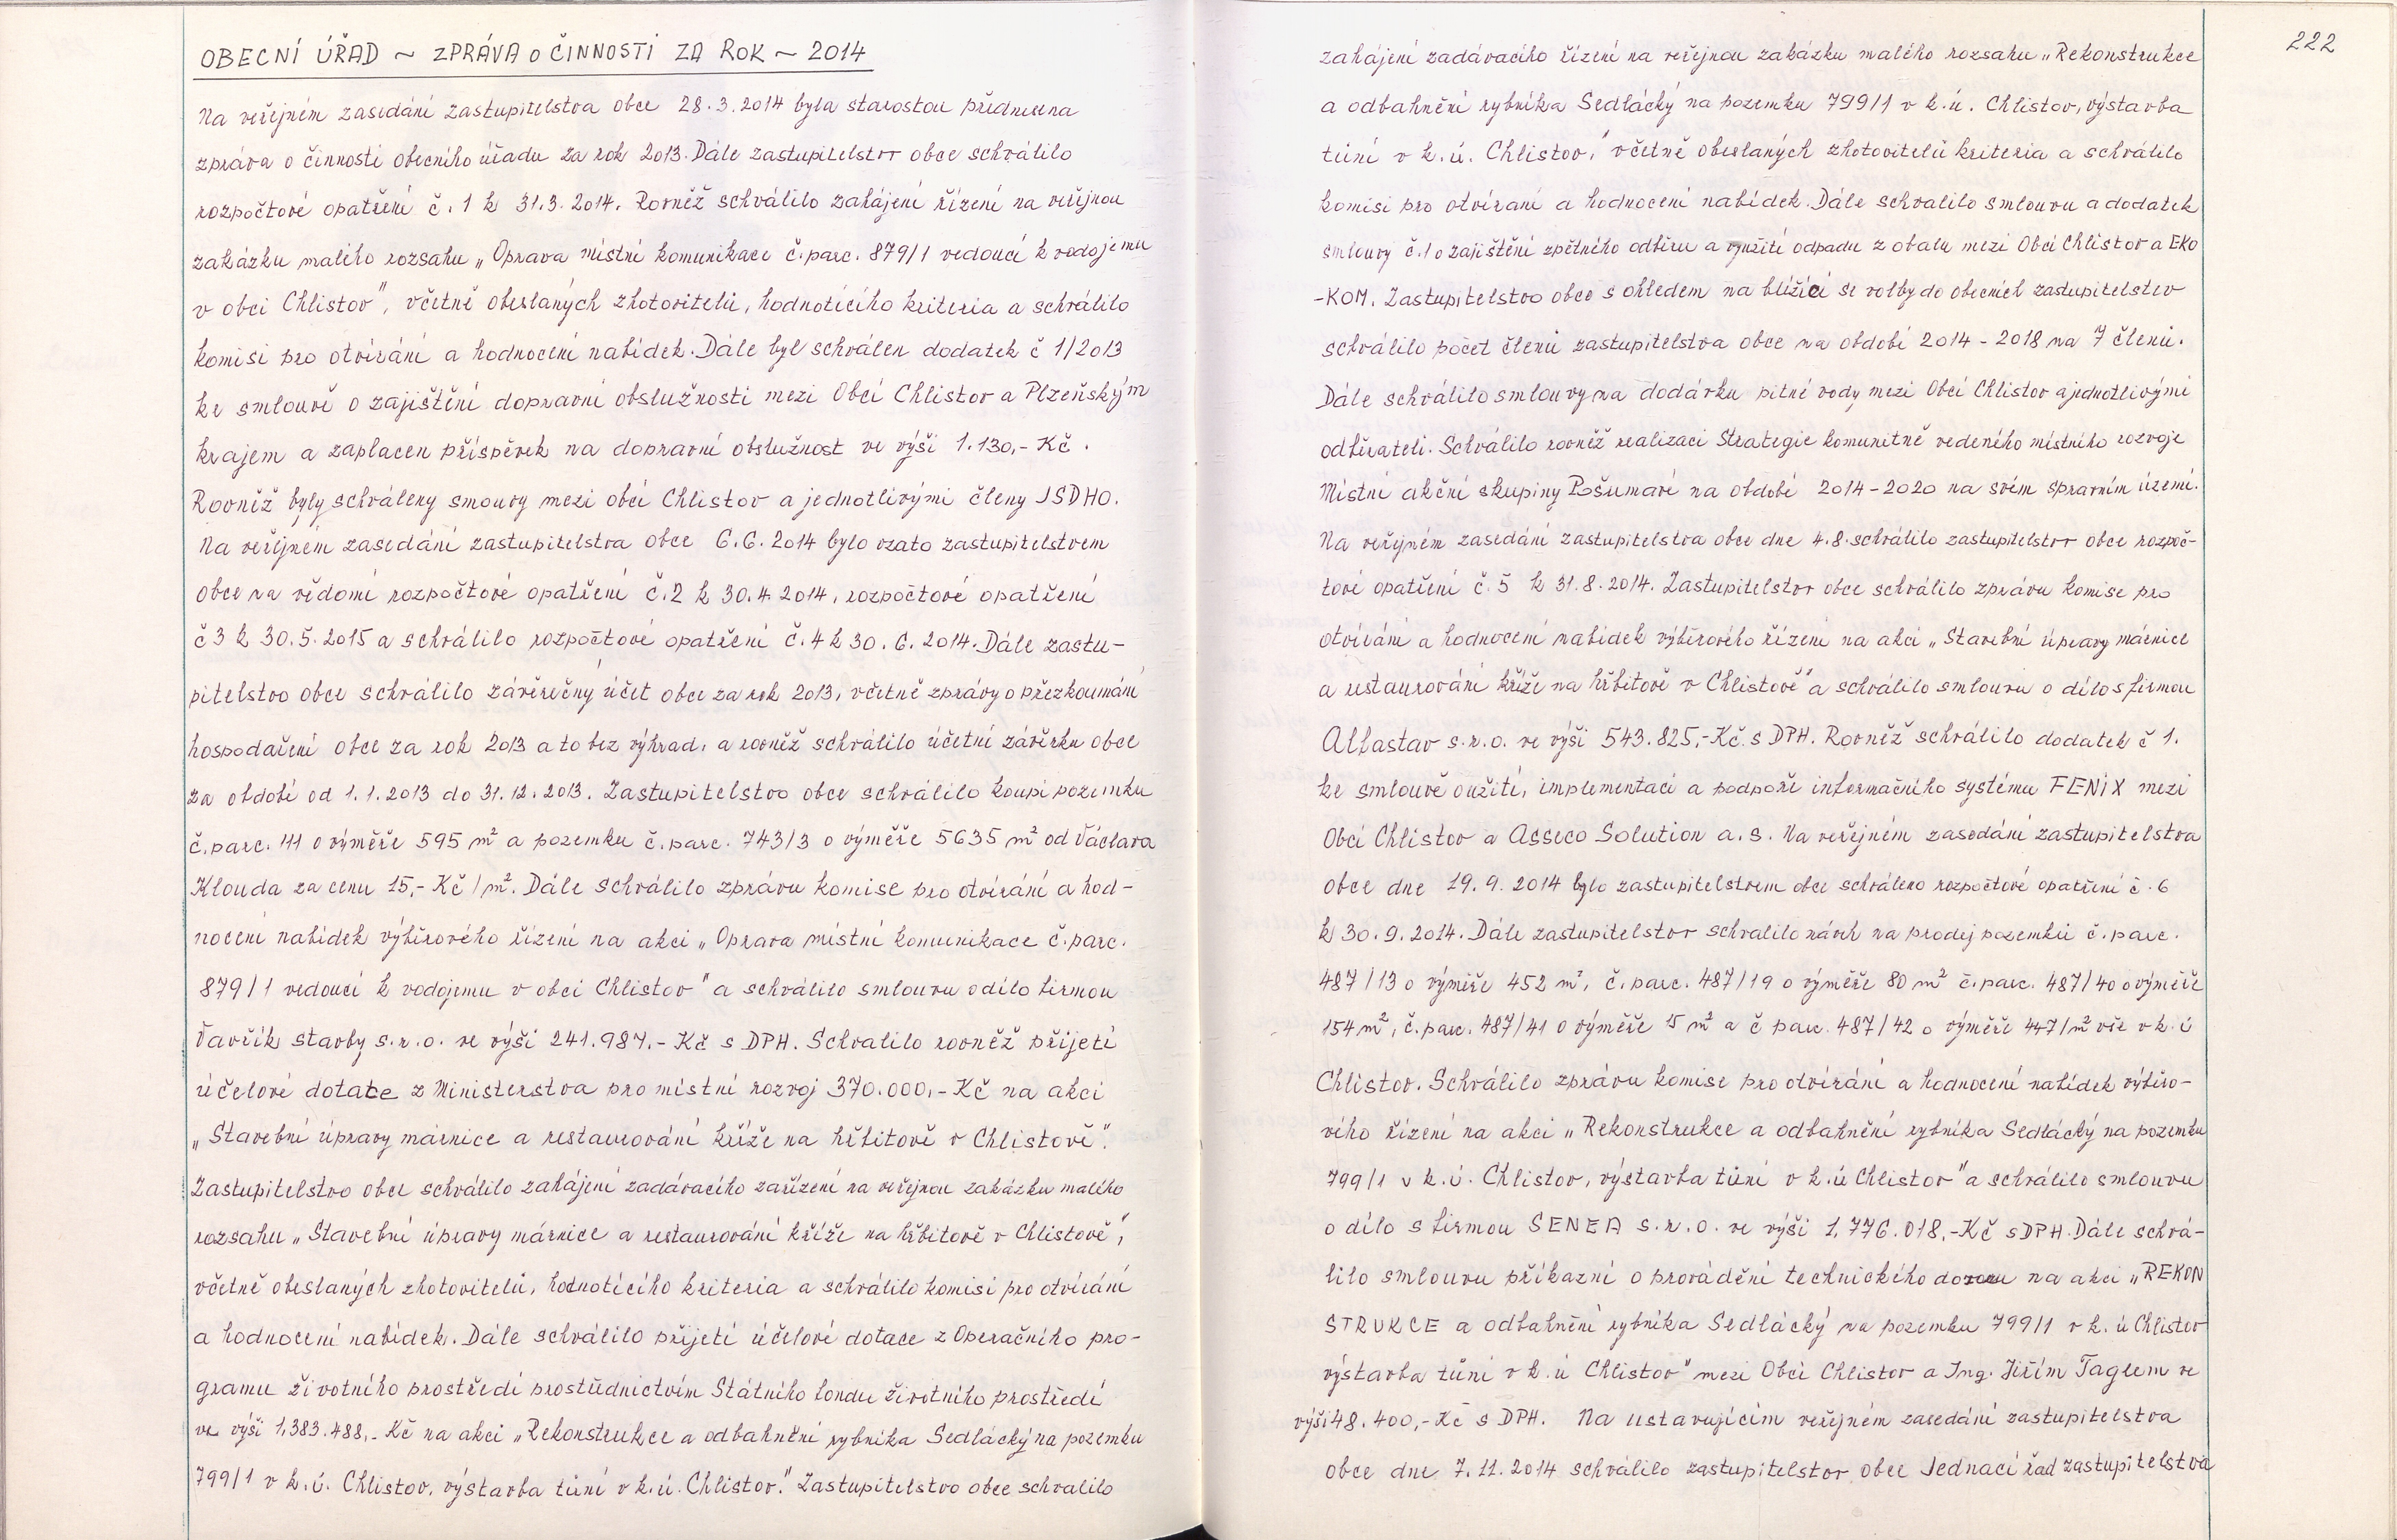 OBECNÍ ÚŘAD ~ ZPRÁVA o ČINNOSTI ZA ROK ~ 2014
Na veřejném zasedání zastupitelstva obce 28.3.2014 byla starostou přednesena
zpráva o činnosti obecního úřadu za rok 2013. Dále zastupitelstvo obce schválilo
rozpočtové opatření č. 1 k 31.3.2014. Rovněž schválilo zahájení řízení na veřejnou
zakázku malého rozsahu „Oprava místní komunikace č.parc. 879/1 vedoucí k vodojemu
v obci Chlistov", včetně obeslaných zhotovitelů, hodnotícího kriteria a schválilo
komisi pro otvírání a hodnocení nabídek. Dále byl schválen dodatek č 1/2013
ke smlouvě o zajištění dopravní obslužnosti mezi Obcí Chlistov a Plzeňským
krajem a zaplacen příspěvek na dopravní obslužnost ve výši 1.130,- Kč.
Rovněž byly schváleny smouvy mezi obcí Chlistov a jednotlivými členy JSDHO.
Na veřejném zasedání zastupitelstva obce 6.6.2014 bylo vzato zastupitelstvem
obce na vědomí rozpočtové opatření č.2 k 30.4.2014, rozpočtové opatření
č 3 k 30.5.2015 a schválilo rozpočtové opatření č.4 k 30.6.2014. Dále zastu-
pitelstvo obce schválilo závěrečný účet obce za rok 2013, včetně zprávy o přezkoumání
hospodaření obce za rok 2013 a to bez výhrad, a rovněž schválilo účetní závěrku obce
za období od 1.1.2013 do 31.12.2013. Zastupitelstvo obce schválilo koupi pozemku
č.parc. 111 o výměře 595 m² a pozemku č.parc. 743/3 o výměře 5635 m² od Václava
Klouda za cenu 15,- Kč/m². Dále schválilo zprávu komise pro otvírání a hod-
nocení nabídek výběrového řízení na akci „Oprava místní komunikace č.parc.
879/1 vedoucí k vodojemu v obci Chlistov" a schválilo smlouvu o dílo firmou
Vavřík stavby s.r.o. ve výši 241.987.- Kč s DPH. Schvalilo rovněž přijetí
účelové dotace z Ministerstva pro místní rozvoj 370.000,- Kč na akci
„Stavební úpravy márnice a restaurování kříže na hřbitově v Chlistově".
Zastupitelstvo obce schválilo zahájení zadávacího zařízení na veřejnou zakázku malého
rozsahu „Stavební úpravy márnice a restaurování kříže na hřbitově v Chlistově",
včetně obeslaných zhotovitelů, hodnotícího kriteria a schválilo komisi pro otvírání
a hodnocení nabídek. Dále schválilo přijetí účelové dotace z Operačního pro-
gramu životního prostředí prostřednictvím Státního fondu životního prostředí
ve výši 1,383.488,- Kč na akci „Rekonstrukce a odbahnění rybníka Sedlácký na pozemku
799/1 v k.ú. Chlistov, výstavba tůní v k.ú. Chlistov." Zastupitelstvo obce schvalilo
222
zahájení zadávacího řízení na veřejnou zakázku malého rozsahu „Rekonstrukce
a odbahnění rybníka Sedlácký na pozemku 799/1 v k.ú. Chlistov, výstavba
tůní v k.ú. Chlistov," včetně obeslaných zhotovitelů kriteria a schválilo
komisi pro otvíraní a hodnocení nabídek. Dále schvalilo smlouvu a dodatek
smlouvy č.1 o zajištění zpětného odběru a využití odpadu z obalu mezi Obcí Chlistov a EKO
-KOM. Zastupitelstvo obce s ohledem na blížící se volby do obecních zastupitelstev
schválilo počet členů zastupitelstva obce na období 2014 - 2018 na 7 členů.
Dále schválilo smlouvy na dodávku pitné vody mezi Obcí Chlistov a jednotlivými
odběrateli. Schválilo rovněž realizaci Strategie komunitně vedeného místního rozvoje
Místní akční skupiny Pošumaví na období 2014-2020 na svém správním území.
Na veřejném zasedání zastupitelstva obce dne 4.8. schválilo zastupitelstvo obce rozpoč-
tové opatření č.5 k 31.8.2014. Zastupitelstvo obce schválilo zprávu komise pro
otvírání a hodnocení nabídek výběrového řízení na akci „Stavební úpravy márnice
a restaurování kříže na hřbitově v Chlistově" a schválilo smlouvu o dílo s firmou
Alfastav s.r.o. ve výši 543.825,-Kč s DPH. Rovněž schválilo dodatek č 1.
ke smlouvě o užití, implementaci a podpoře informačního systému FENIX mezi
Obcí Chlistov a Asseco Solution a.s. Na veřejném zasedání zastupitelstva
obce dne 19.9.2014 bylo zastupitelstvem obce schváleno rozpočtové opatření č.6
k 30.9.2014. Dále zastupitelstvo schvalilo návrh na prodej pozemků č.parc.
487/13 o výměře 452 m², č.parc. 487/19 o výměře 80 m² č.parc. 487/40 o výměře
154 m², č.parc. 487/41 o výměře 15 m² a č parc. 487/42 o výměře 447/m² vše v k.ú
Chlistov. Schválilo zprávu komise pro otvírání a hodnocení nabídek výběro-
vého řízení na akci „Rekonstrukce a odbahnění rybníka Sedlácký na pozemku
799/1 v k.ú. Chlistov, výstavba tůní v k.ú Chlistov" a schválilo smlouvu
o dílo s firmou SENEA s.r.o. ve výši 1,776.018,-Kč s DPH. Dále schvá-
lilo smlouvu příkazní o provádění technického dozoru na akci „REKON
STRUKCE a odbahnění rybníka Sedlácký na pozemku 799/1 v k.ú Chlistov
výstavba tůní v k.ú Chlistov" mezi Obcí Chlistov a Ing. Jiřím Taglem ve
výši 48.400,-Kč s DPH. Na ustavujícím veřejném zasedání zastupitelstva
obce dne 7.11.2014 schválilo zastupitelstvo obce Jednací řád zastupitelstva